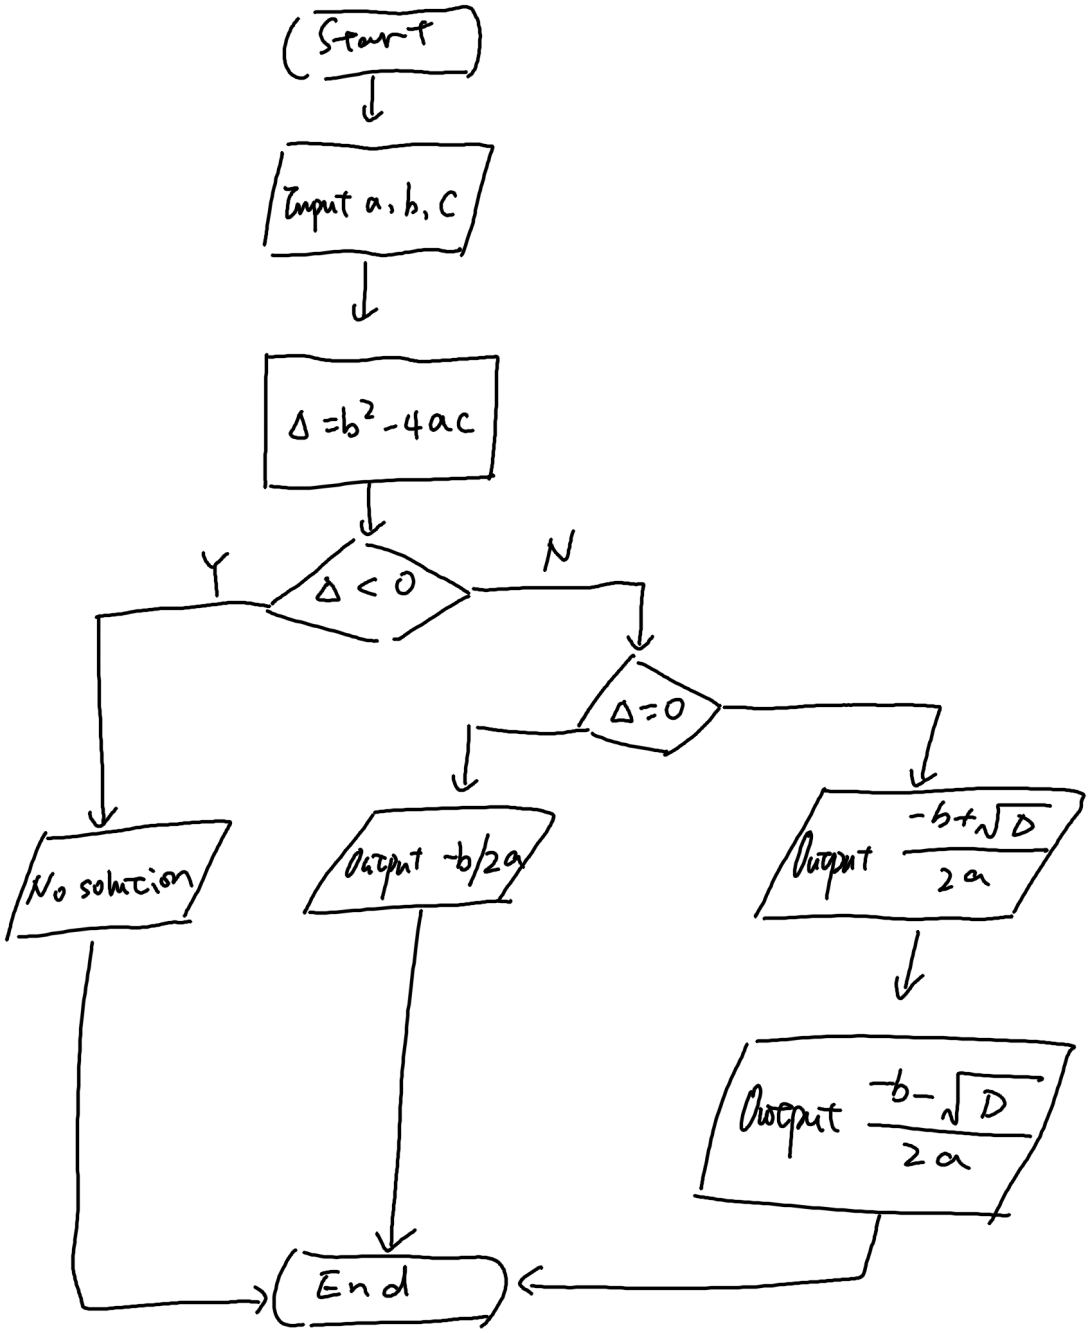 Start
Input a, b, c
Δ = b² - 4ac
Y
N
Δ < 0
Δ = 0
No solution
Output -b/2a
Output (-b+√D)/2a
Output (-b-√D)/2a
End